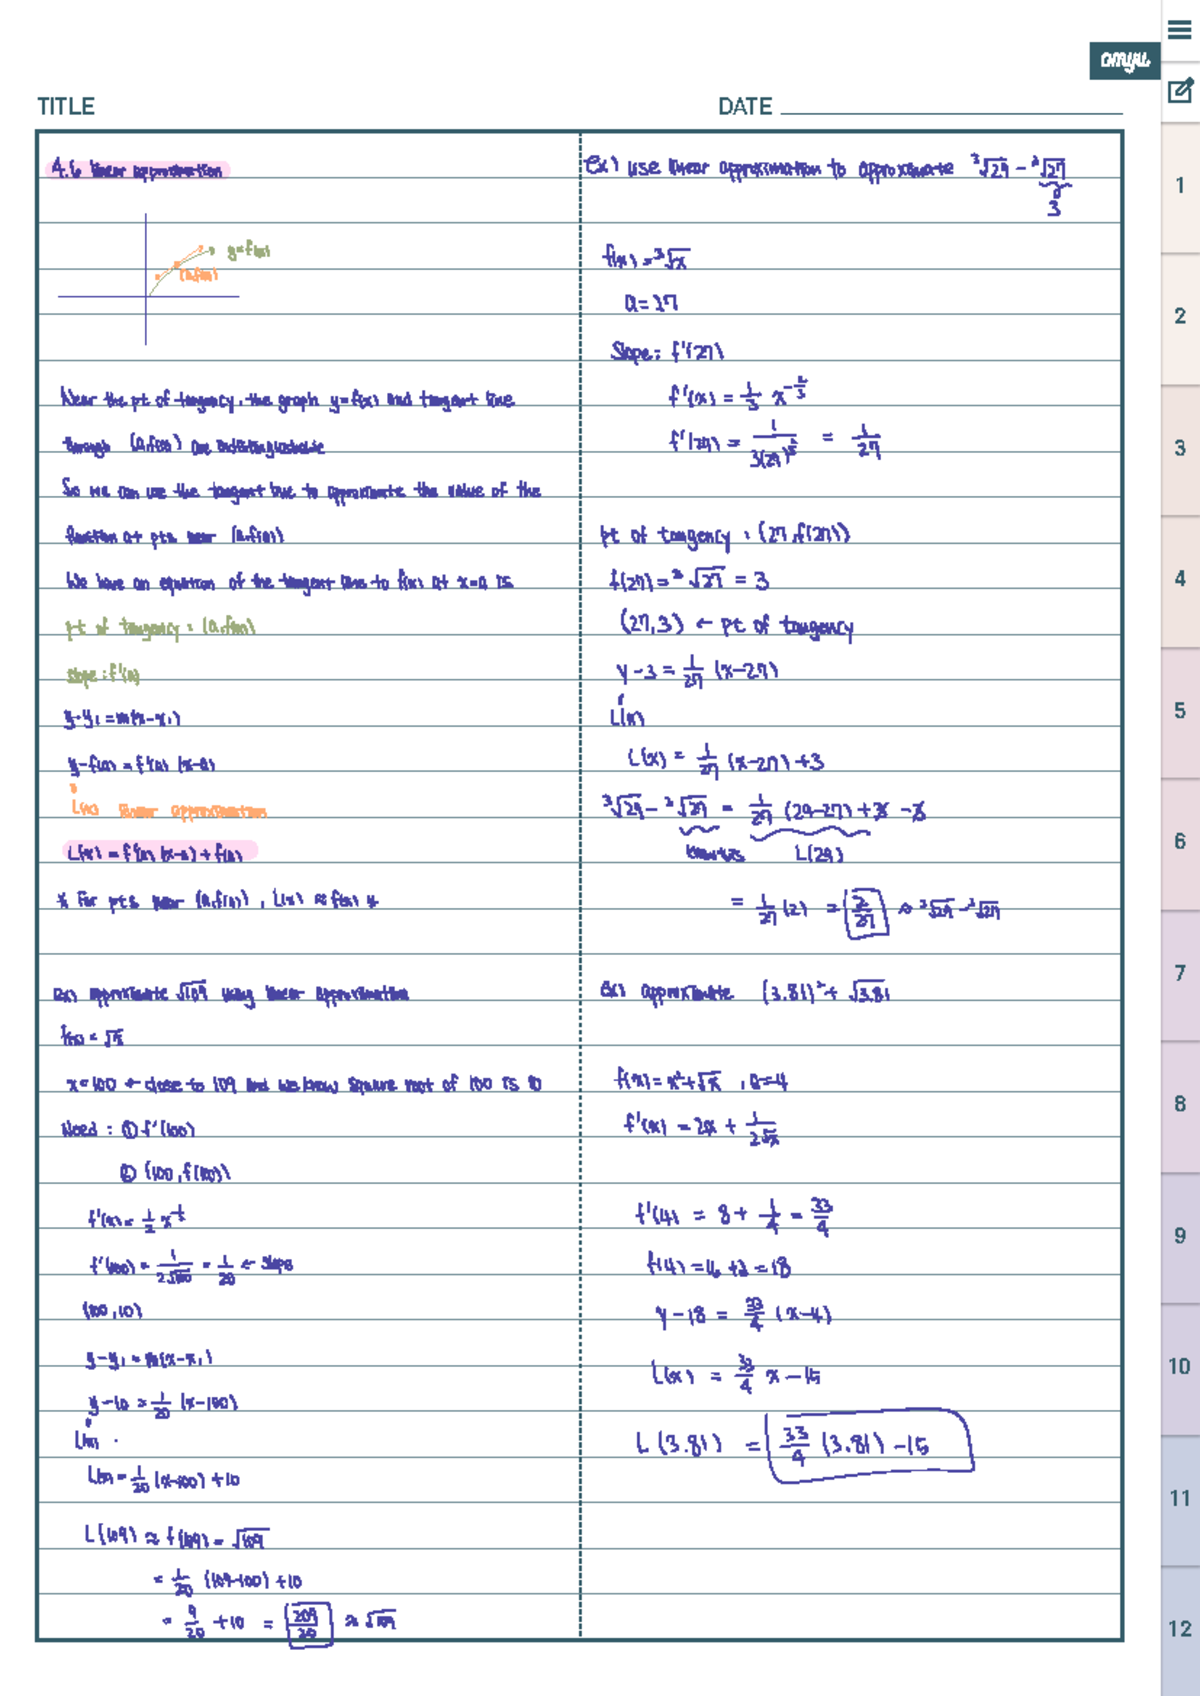 amyu.
TITLE
DATE
4.6 linear approximation
y=f(x)
(a,f(a))
Near the pt of tangency, the graph y=f(x) and tangent line
through (a,f(a)) are indistinguishable
So we can use the tangent line to approximate the value of the
function at pts near (a,f(a))
We have an equation of the tangent line to f(x) at x=a is
pt of tangency : (a,f(a))
slope : f'(a)
y-y₁ = m(x-x₁)
y-f(a) = f'(a) (x-a)
L(x) linear approximation
L(x) = f'(a) (x-a) + f(a)
* For pts near (a,f(a)), L(x) ≈ f(x) *
Ex) approximate √109 using linear approximation
f(x) = √x
x=100 ← close to 109 and we know square root of 100 is 10
Need : ① f'(100)
② (100, f(100))
f'(x) = 1/2 x^-1/2
f'(100) = 1/2√100 = 1/20 ← slope
(100,10)
y-y₁ = m(x-x₁)
y-10 = 1/20 (x-100)
L(x)
L(x) = 1/20 (x-100) +10
L(109) ≈ f(109) = √109
= 1/20 (109-100) +10
= 9/20 +10 = 209/20 ≈ √109
Ex) Use linear approximation to approximate ³√29 - ³√27
3
f(x) = ³√x
a=27
Slope: f'(27)
f'(x) = 1/3 x^-2/3
f'(27) = 1/3(27)^2/3 = 1/27
pt of tangency : (27, f(27))
f(27) = ³√27 = 3
(27,3) ← pt of tangency
y-3 = 1/27 (x-27)
L(x)
L(x) = 1/27 (x-27)+3
³√29 - ³√27 = 1/27 (29-27) +3 -3
L(29)
= 1/27 (2) = 2/27 ≈ ³√29 - ³√27
Ex) approximate (3.81)² + √3.81
f(x) = x²+√x , a=4
f'(x) = 2x + 1/2√x
f'(4) = 8 + 1/4 = 33/4
f(4) = 16 +2 = 18
y-18 = 33/4 (x-4)
L(x) = 33/4 x -15
L(3.81) = 33/4 (3.81) -15
1
2
3
4
5
6
7
8
9
10
11
12